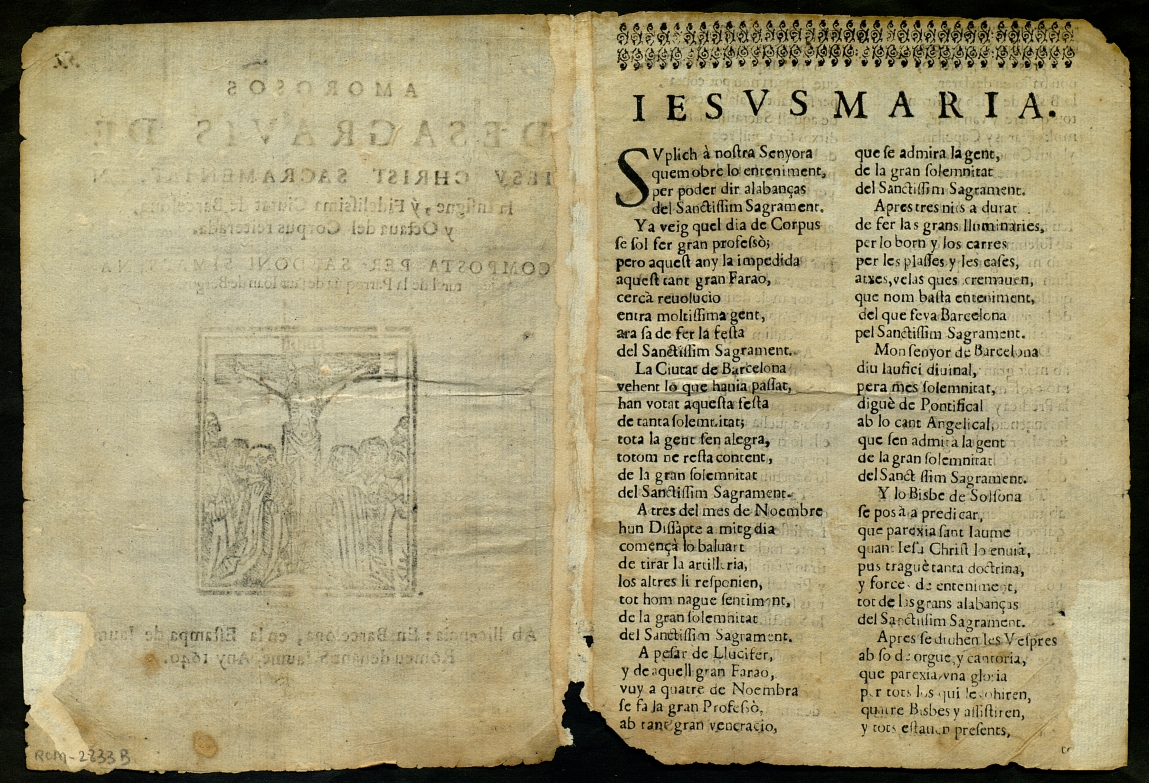 AMOROSOS
DESAGRAVIS DE
IESV CHRIST SACRAMENTAT, EN
la insigne, y Fidelissima Ciutat de Barcelona,
y Octaua del Corpus reiterada.
COMPOSTA PER
Ab llicencia: En Barcelona, en la Estampa de Iaume
Romeu deuant S. Iaume, Any 1640.
RCM-2833 B
IESVS MARIA.
SVplich à nostra Senyora
quem obre lo enteniment,
per poder dir alabanças
del Sanctissim Sagrament.
Ya veig quel dia de Corpus
se sol fer gran professò;
pero aquest any la impedida
aquest tant gran Farao,
cercà reuolucio
entra moltissima gent,
ara sa de fer la festa
del Sanctissim Sagrament.
La Ciutat de Barcelona
vehent lo que hauia passat,
han votat aquesta festa
de tanta solemnitat;
tota la gent sen alegra,
totom ne resta content,
de la gran solemnitat
del Sanctissim Sagrament.
A tres del mes de Noembre
hun Dissàpte a mitg dia
començà lo baluart
de tirar la artilleria,
los altres li responien,
tot hom nague sentiment,
de la gran solemnitat
del Sanctissim Sagrament.
A pesar de Llucifer,
y de aquell gran Farao,
vuy a quatre de Noembra
se fa la gran Professò,
ab tant gran veneracio,
que se admira la gent,
de la gran solemnitat
del Sanctissim Sagrament.
Apres tres nits a durat
de fer las grans lluminaries,
per lo born y los carres
per les plasses y les cases,
atxes, velas ques cremauen,
que nom basta enteniment,
del que feva Barcelona
pel Sanctissim Sagrament.
Monsenyor de Barcelona
diu laufici diuinal,
pera mes solemnitat,
diguè de Pontifical
ab lo cant Angelical,
que sen admira la gent
de la gran solemnitat
del Sanctissim Sagrament.
Y lo Bisbe de Solsona
se posà a predicar,
que parexia sant Iaume
quant Iesu Christ lo enuià,
pus traguè tanta doctrina,
y forces de enteniment,
tot de las grans alabanças
del Sanctissim Sagrament.
Apres se diuhen les Vespres
ab so de orgue, y cantoria,
que parexia vna gloria
per tots los qui le ohiren,
quatre Bisbes y assistiren,
y tots estauen presents,